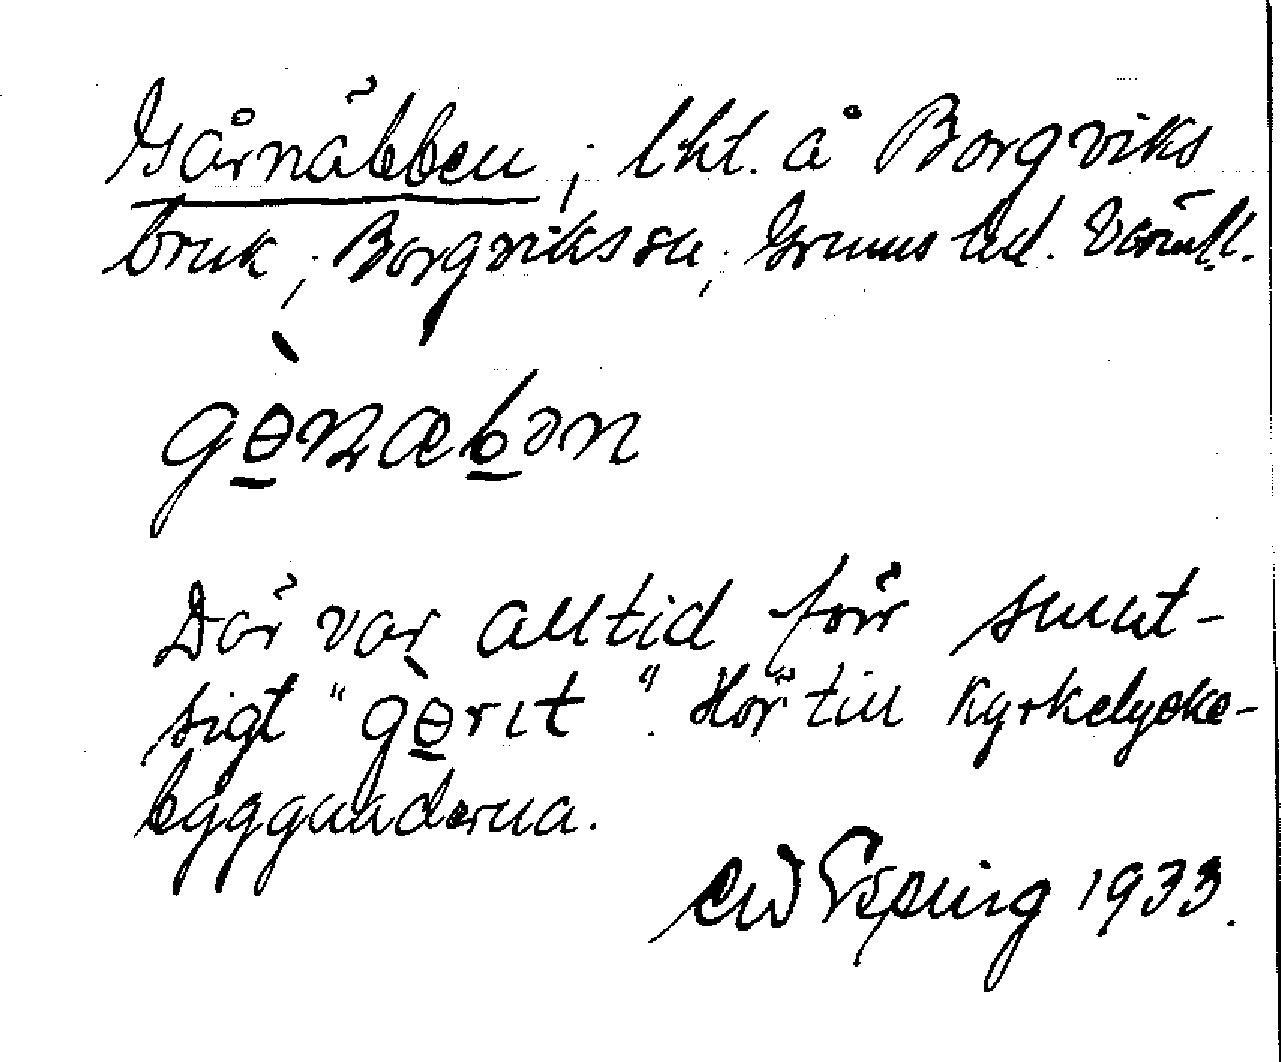 Gårnäbben, lht. å Borgviks
bruk, Borgviks sn, Grums hd. Värml.
gɵ̀ɳæbən
Där var alltid förr smut-
sigt "gɵ̀rıt". Hör till Kyrkelycke-
byggnaderna.
CW Esping 1933.